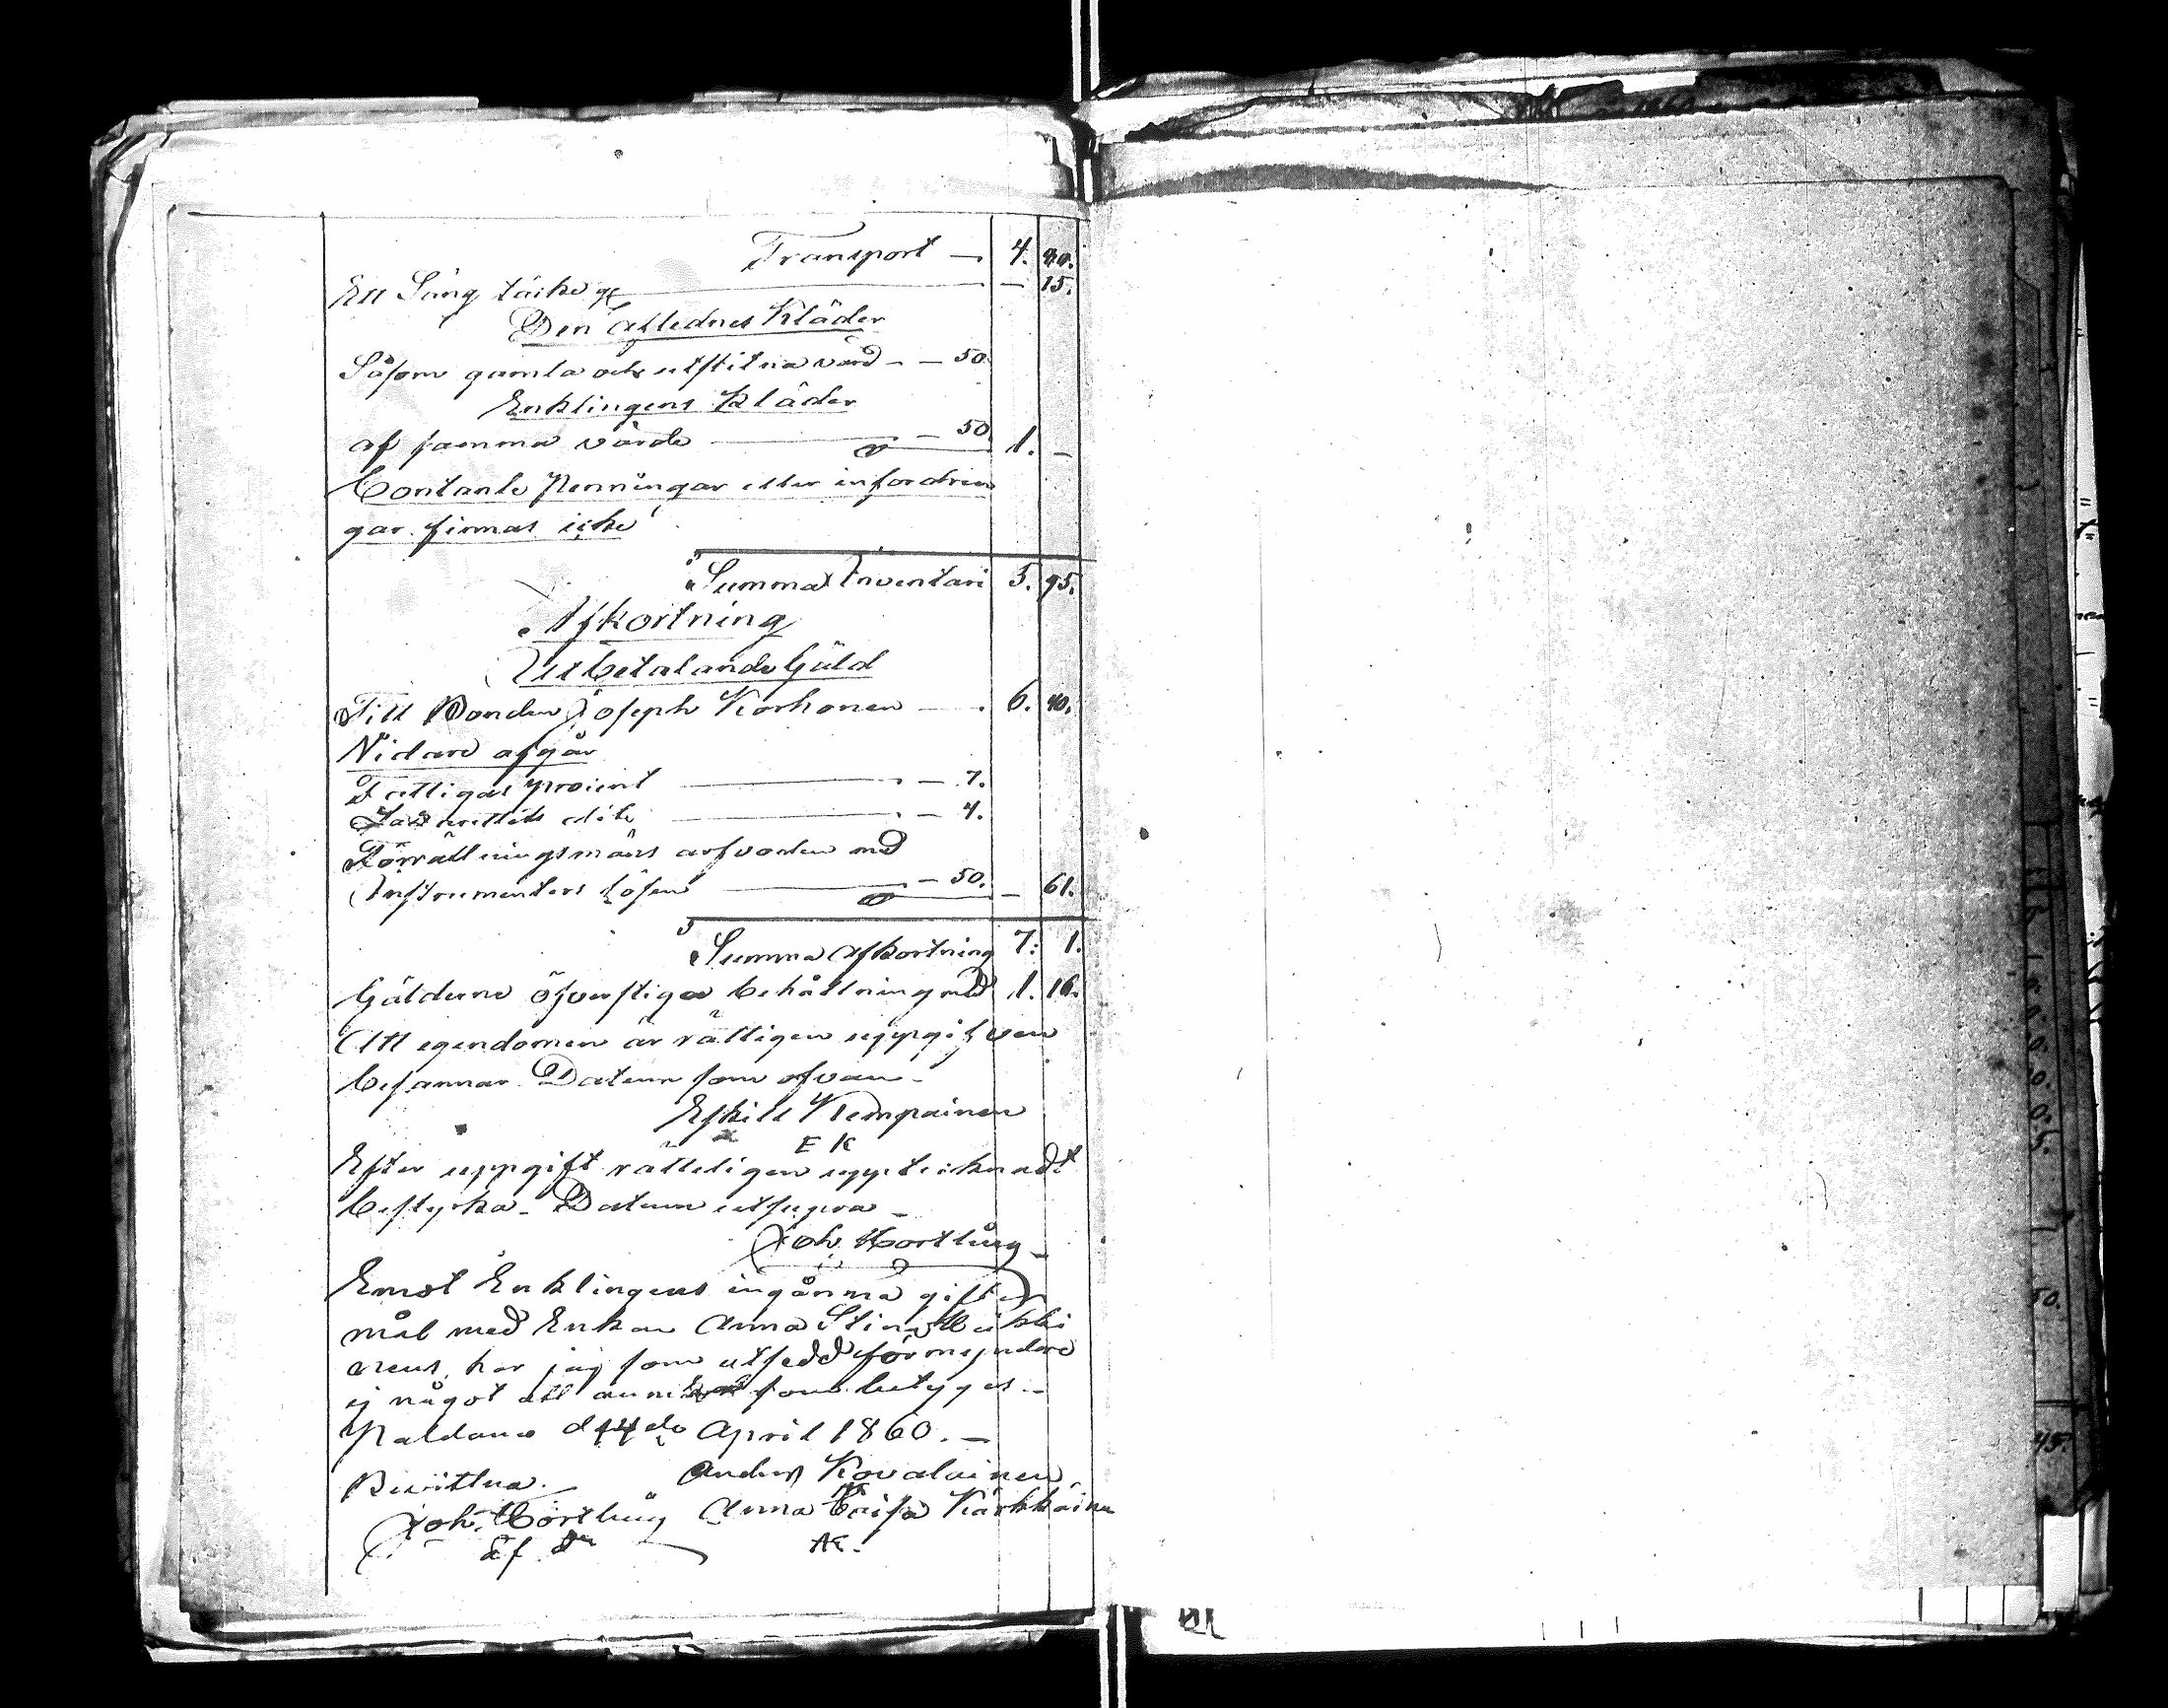 Transport — 4. 80.
Ett Säng täcke gl — 15.
Den Aflednes Kläder
Såsom gamla och utslitna värd - — 50.
Enklingens Kläder
af samma värde — 50. 1. —
Contanta Penningar eller infordrin
gar finnas icke
Summa Inventari 5. 95.
Afkortning
Utbetalande Gäld
Till Bonden Joseph Korhonen — 6. 40.
Vidare afgår
Fattigas procent — 7.
Lazarettets dito — 4.
Förrättningsmäns arfvoden med
Instrumenters lösen — 50. — 61.
Summa Afkortning 7. 1.
Gälderne öfverstiga behållning med 1. 16.
Att egendomen är rätligen uppgifven
besannar. Datum som ofvan.
Eskill Kempainen
E K
Efter uppgift rätteligen upptecknadt
bestyrka. Datum utsupra —
Joh. Hortling
Emot Enklingens ingånna gifter
mål med Enkan Anna Stina Heikki
neus, har jag som utsedd förmyndare
ej något att som betyges. —
Paldamo d 14de April 1860. —
Bevittna. Anders Kovalainen
Joh. Hortling Anna Caisa Kärkkäinen
AK.